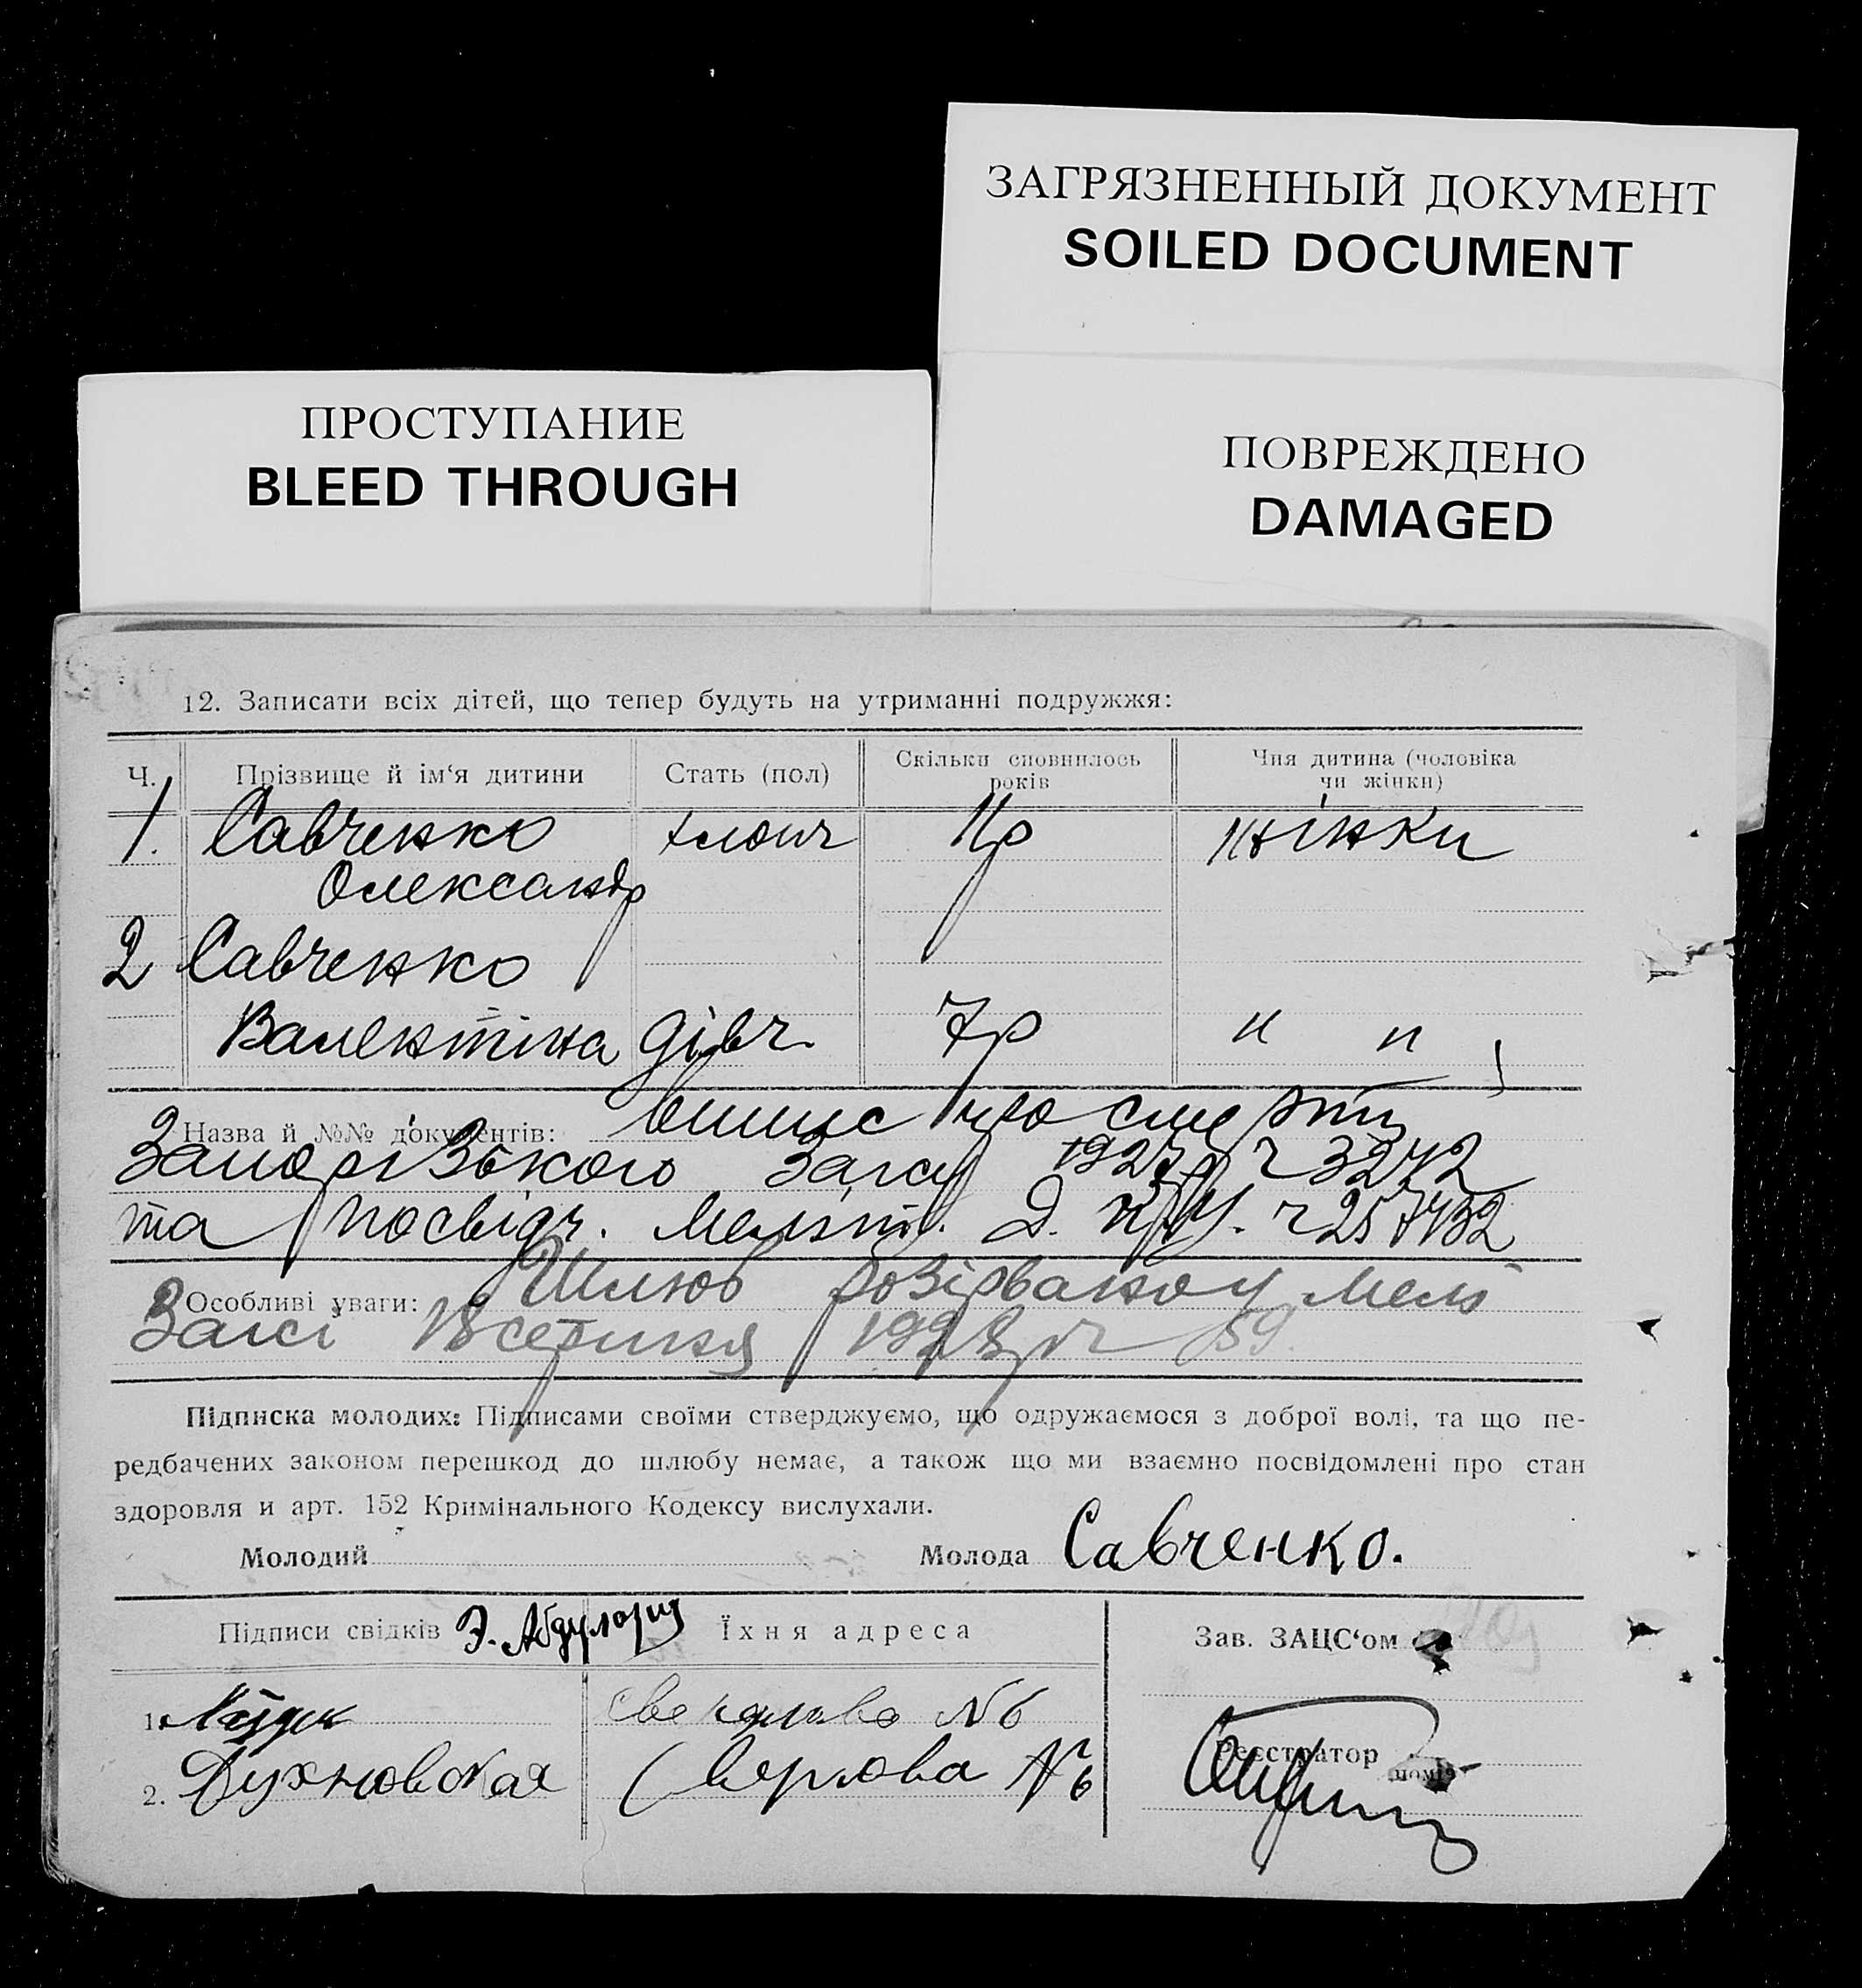 ЗАГРЯЗНЕННЫЙ ДОКУМЕНТ
SOILED DOCUMENT
ПРОСТУПАНИЕ
BLEED THROUGH
ПОВРЕЖДЕНО
DAMAGED
12. Записати всіх дітей, що тепер будуть на утриманні подружжя:
Ч. Прізвище й ім‘я дитини Стать (пол) Скільки сповнилось років Чия дитина (чоловіка чи жінки)
1. Савченко хлопч 11р жінки
Олександр
2 Савченко
Валентіна дівч. 7р " "
Назва й №№ документів: випис про смерть
Запорізького Загсу 1927р ч 3272
та посвідч. Меліт.
Особливі уваги: Шлюб розірвано у Меліт
Загсі 18 серпня 1928р ч 59.
Підписка молодих: Підписами своїми стверджуємо, що одружаємося з доброї волі, та що пе-
редбачених законом перешкод до шлюбу немає, а також що ми взаємно посвідомлені про стан
здоровля и арт. 152 Кримінального Кодексу вислухали.
Молодий Молода Савченко.
Підписи свідків Їхня адреса Зав. ЗАЦС‘ом
1. №6
2. Духновская Свердлова №6
Реєстратор